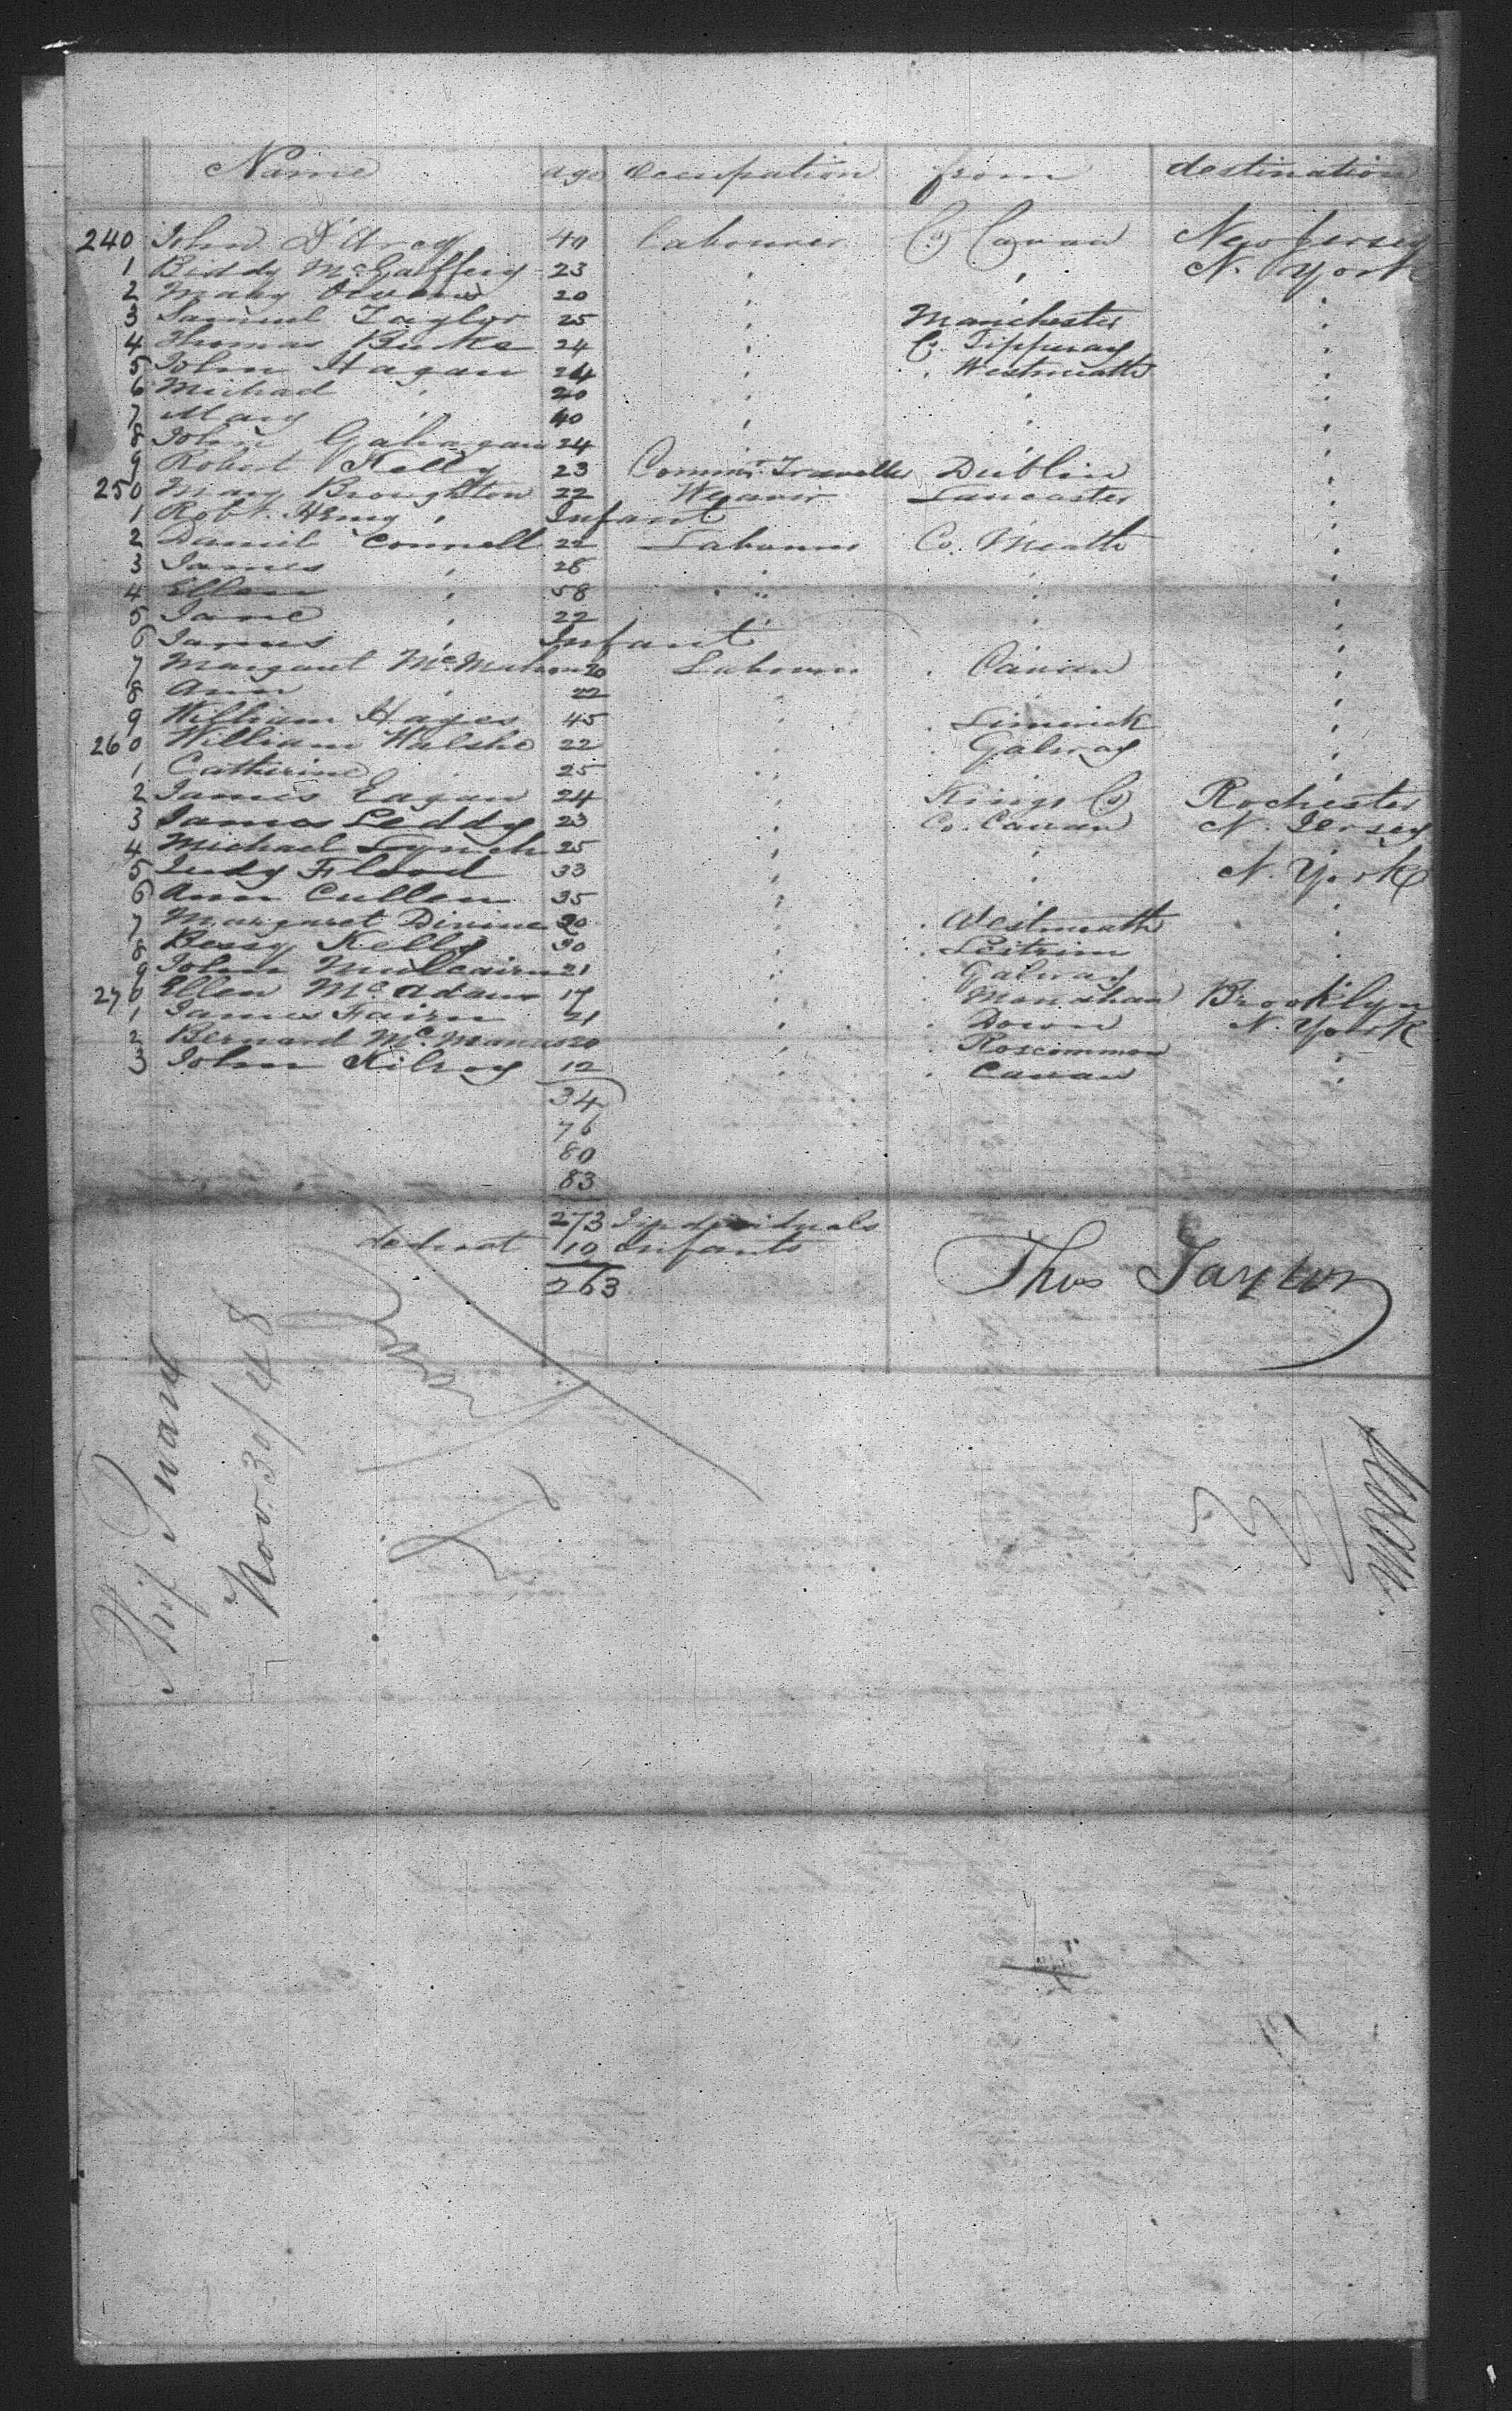 Name age occupation from destination
240 John D'Arcy 40 Labourer Co Cavan New Jersey
1 Biddy McGaffery 23 " " N. York
2 Mary Owens 20 " " "
3 Samuel Taylor 25 " Manchester "
4 Thomas Burke 24 " Co. Tipperay "
5 John Hagan 24 " " Westmeath "
6 Michael " 20 " " "
7 Mary " 40 " " "
8 John Gahagan 24 " " "
9 Robert Kelly 23 Comml. Traveller Dublin "
250 Mary Broughton 22 Weaver Lancaster "
1 Robt. Henry " Infant "
2 Daniel Connell 22 Labourer Co. Meath "
3 James " 28 " " "
4 Ellen " 58 " " "
5 Jane " 22 " " "
6 James " Infant "
7 Margaret McMahon 20 Labourer " Cavan "
8 Ann " 22 " " "
9 William Hayes 45 " " Limerick "
260 William Walshe 22 " " Galway "
1 Catherine " 25 " " "
2 James Eagan 24 " Kings Co Rochester
3 James Leddy 23 " Co. Cavan N. Jersey
4 Michael Lynch 25 " " "
5 Judy Flood 33 " " N. York
6 Ann Cullen 35 " " "
7 Margaret Divine 20 " " Westmeath "
8 Bessy Kelly 30 " " Leitrim "
9 John Mulcairn 21 " Galway "
270 Ellen McAdam 17 " Monahan Brooklyn
1 James Fairn 21 " " Down N. York
2 Bernard McManus 20 " " Roscommon "
3 John Kilroy 12 " " Cavan "
34
76
80
83
273 Individuals
deduct 10 infants
263
Thos Taylor
Ship
Nov. 30/48